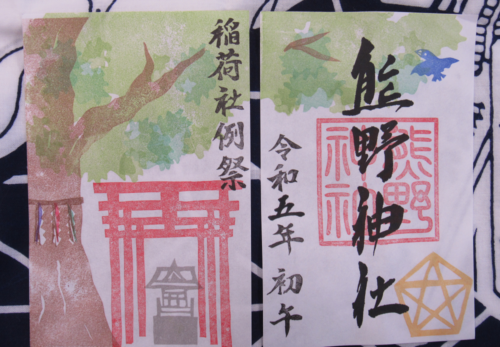 熊野神社
熊野
神社
令和五年 初午
稲荷社例祭